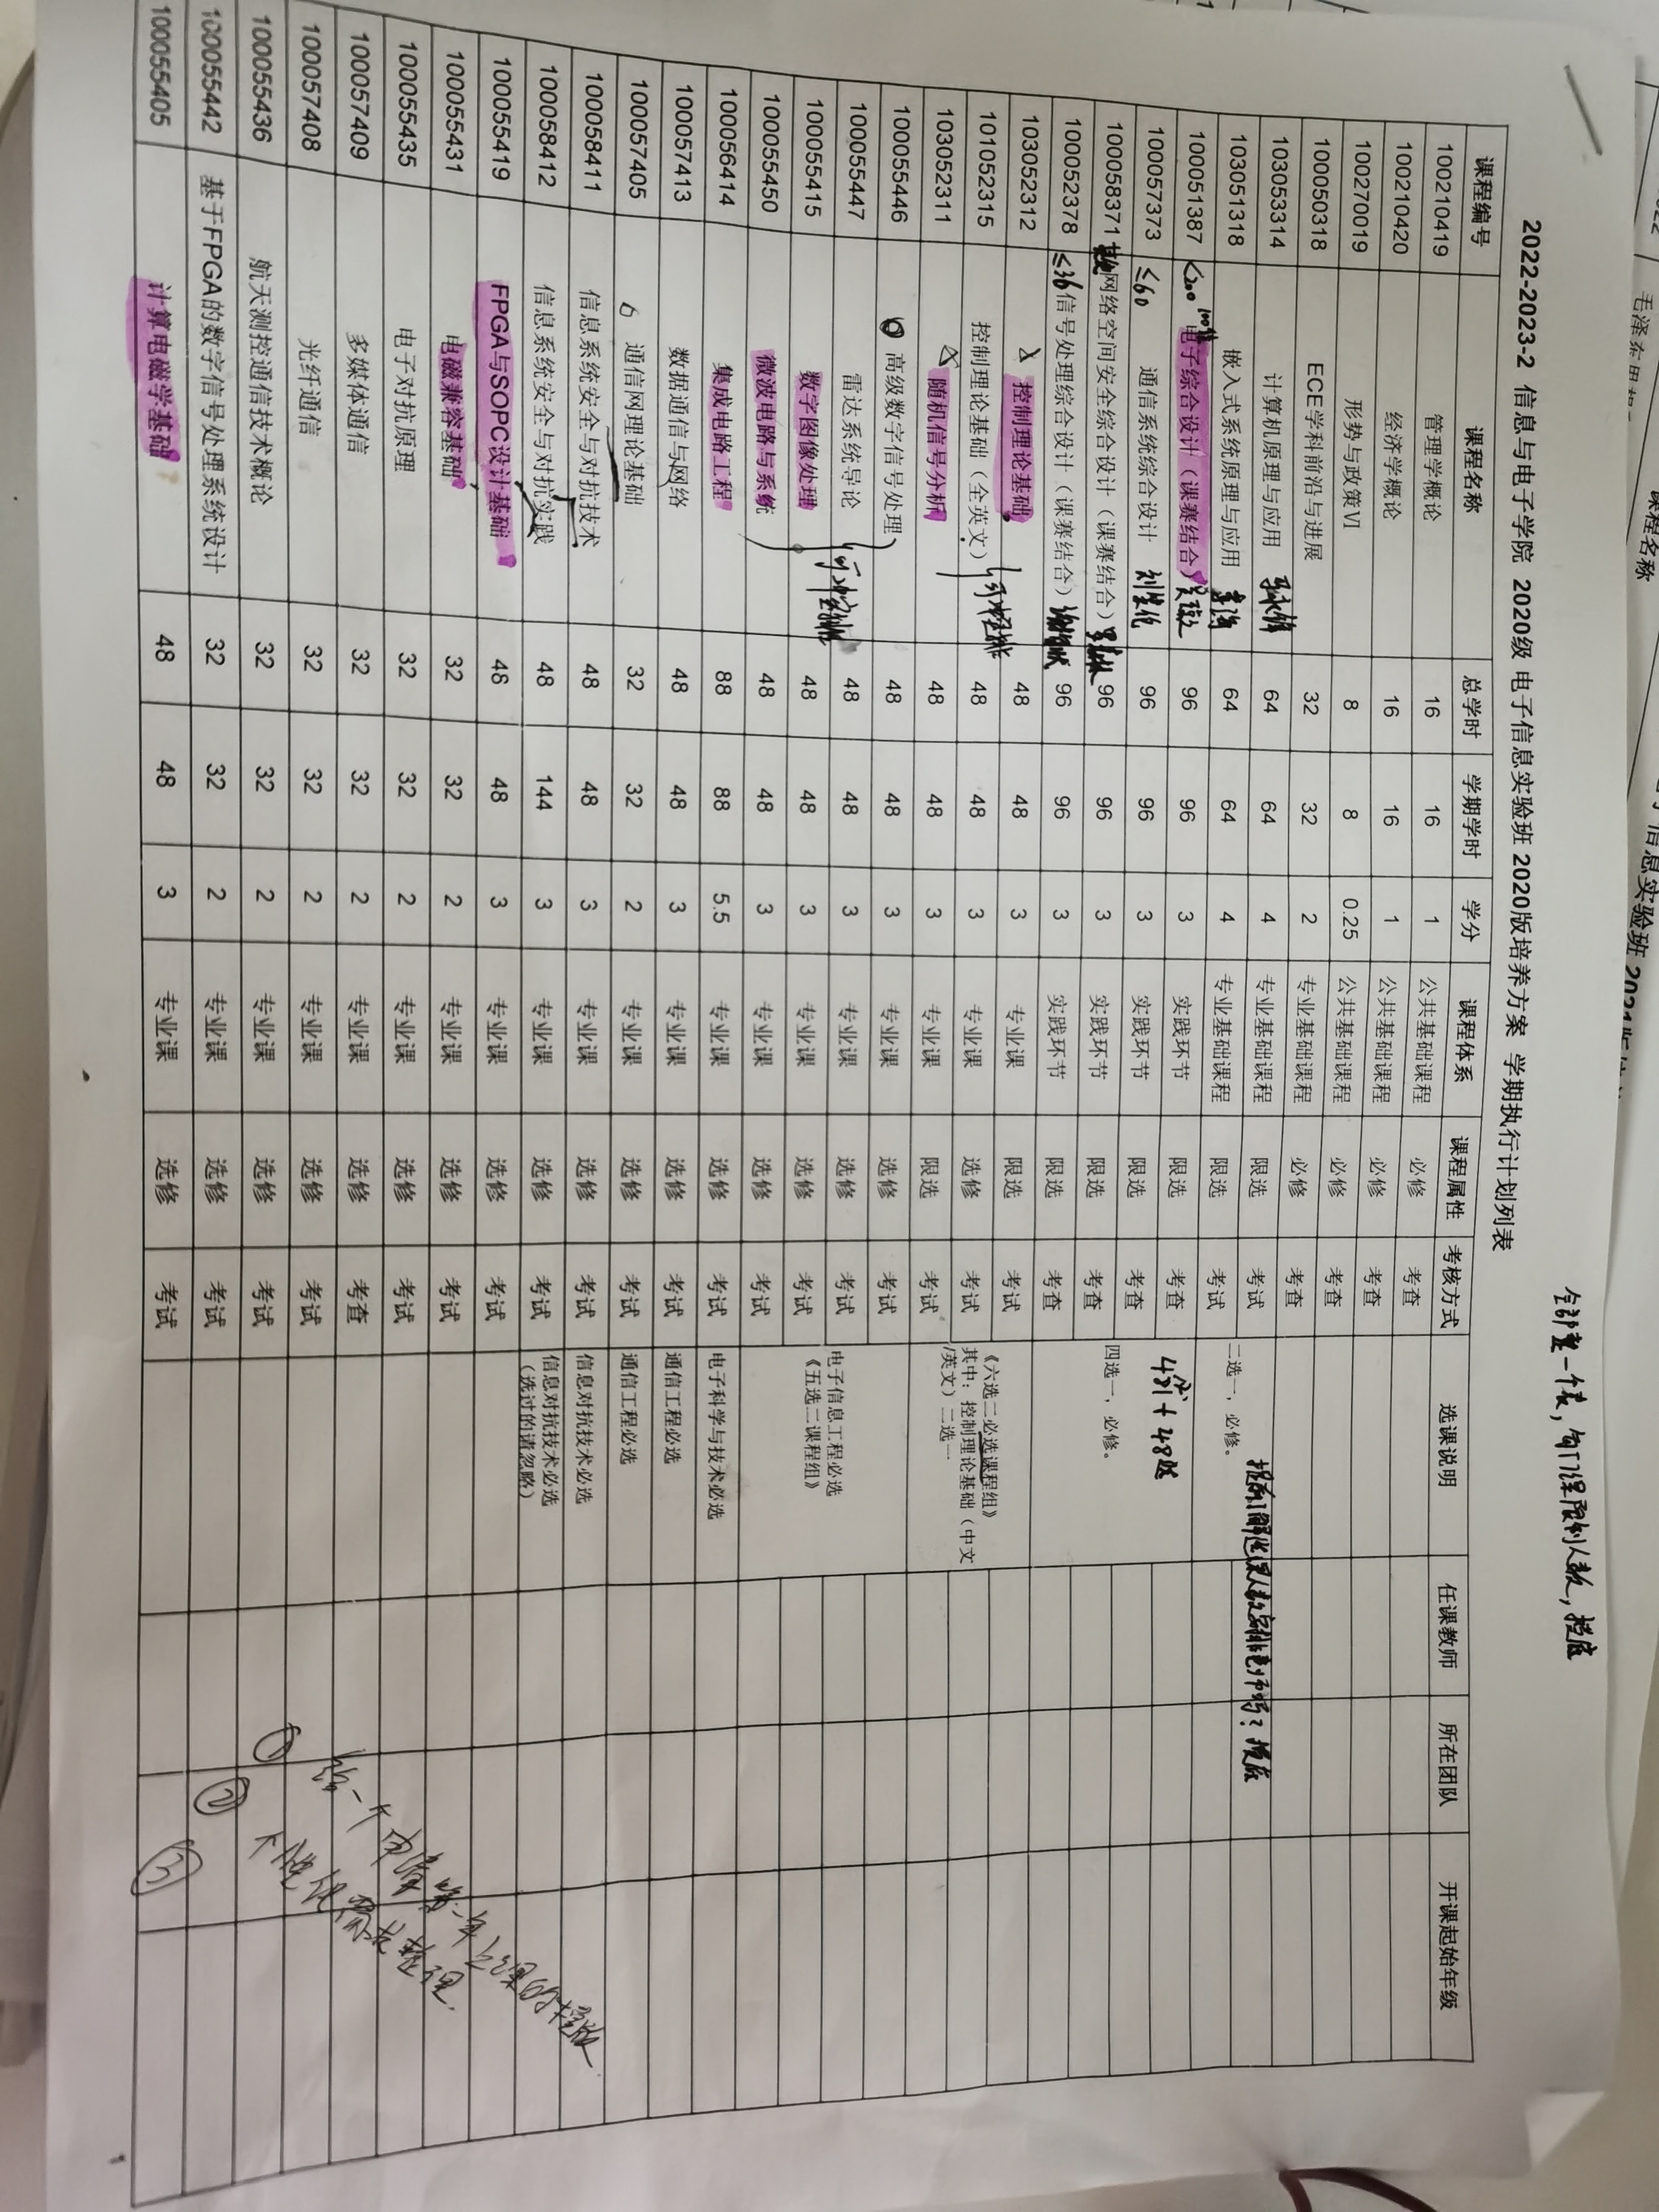 全部查一个表，每门课限制人数，授底
2022-2023-2 信息与电子学院 2020级 电子信息实验班 2020版培养方案 学期执行计划列表
课程编号 课程名称 总学时 学期学时 学分 课程体系 课程属性 考核方式 选课说明 任课教师 所在团队 开课起始年级
100210419 管理学概论 16 16 1 公共基础课程 必修 考查
100210420 经济学概论 16 16 1 公共基础课程 必修 考查
100270019 形势与政策VI 8 8 0.25 公共基础课程 必修 考查
100050318 ECE学科前沿与进展 32 32 2 专业基础课程 必修 考查
103053314 计算机原理与应用 64 64 4 专业基础课程 限选 考试 二选一，必修。
103051318 嵌入式系统原理与应用 李海 64 64 4 专业基础课程 限选 考试
100051387 ≤200 电子综合设计（课赛结合） 96 96 3 实践环节 限选 考查 四选一，必修。
100057373 ≤60 通信系统综合设计 96 96 3 实践环节 限选 考查
100058371 网络空间安全综合设计（课赛结合） 96 96 3 实践环节 限选 考查
100052378 ≤36 信号处理综合设计（课赛结合） 96 96 3 实践环节 限选 考查
103052312 控制理论基础 48 48 3 专业课 限选 考试 《六选二必选课程组》
101052315 控制理论基础（全英文） 48 48 3 专业课 选修 考试 其中：控制理论基础（中文
103052311 随机信号分析 48 48 3 专业课 限选 考试 /英文）二选一
100055446 高级数字信号处理 48 48 3 专业课 选修 考试
100055447 雷达系统导论 48 48 3 专业课 选修 考试 电子信息工程必选
100055415 数字图像处理 48 48 3 专业课 选修 考试 《五选二课程组》
100055450 微波电路与系统 48 48 3 专业课 选修 考试
100056414 集成电路工程 88 88 5.5 专业课 选修 考试 电子科学与技术必选
100057413 数据通信与网络 48 48 3 专业课 选修 考试 通信工程必选
100057405 通信网理论基础 32 32 2 专业课 选修 考试 通信工程必选
100058411 信息系统安全与对抗技术 48 48 3 专业课 选修 考试 信息对抗技术必选
100058412 信息系统安全与对抗实践 48 144 3 专业课 选修 考试 信息对抗技术必选
（选过的请忽略）
100055419 FPGA与SOPC设计基础 48 48 3 专业课 选修 考试
100055431 电磁兼容基础 32 32 2 专业课 选修 考试
100055435 电子对抗原理 32 32 2 专业课 选修 考试
100057409 多媒体通信 32 32 2 专业课 选修 考查
100057408 光纤通信 32 32 2 专业课 选修 考试
100055436 航天测控通信技术概论 32 32 2 专业课 选修 考试
100055442 基于FPGA的数字信号处理系统设计 32 32 2 专业课 选修 考试
100055405 计算电磁学基础 48 48 3 专业课 选修 考试
①
②
③